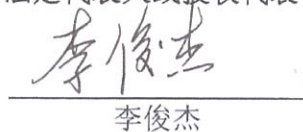 李俊杰
李俊杰